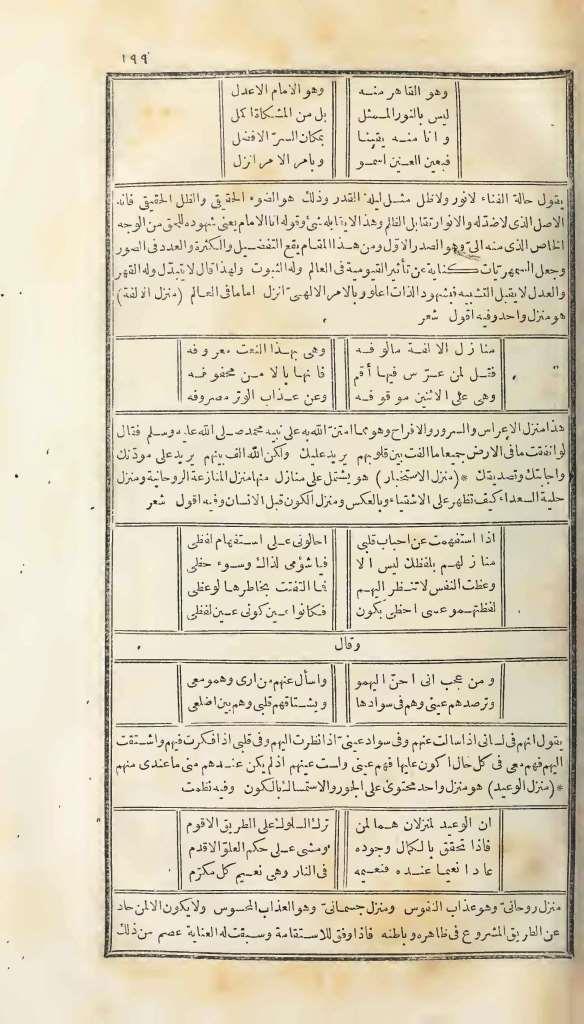 ١٩٩
وهو القاهر منه وهو الامام الاعدل
ليس بالنور الممثل بل من المشكاة اكمل
وانا منه يقينا بمكان السر الافضل
فبعين العين اسمو وبامر الامر انزل
يقول حالة الفناء لا نور ولا ظل مثل ليلة القدر وذلك هو الضوء الحقيقي والظل الحقيقي فانه
الاصل الذي لا ضد له والانوار تقابل الظلم وهذا لا يقابله شئ وقوله انا الامام يعني شهوده للحق من الوجه
الخاص الذي منه اليّ وهو الصدر الاول ومن هذا المقام يقع التفضيل والكثرة والعدد في الصور
وجعل السمهريات كناية عن تأثير القيومية في العالم وله الثبوت ولهذا قال لا يتبدل وله القهر
والعدل لا يقبل التشبيه فبشهود الذات اعلو وبالامر الالهي انزل اماما في العالم (منزل الالفة)
هو منزل واحد وفيه اقول شعر
منازل الالفة مألوفه وهي بهذا النعت معروفه
فقل لمن عرّس فيها أقم فانها بالامن محفوفه
وهي على الاثنين موقوفه وعن عذاب الوتر مصروفه
هذا منزل الاعراس والسرور والافراح وهو مما امتن الله به على نبيه محمد صلى الله عليه وسلم فقال
لو انفقت ما في الارض جميعا ما الفت بين قلوبهم يريد عليك ولكن الله الف بينهم يريد على مودتك
واجابتك وتصديقك *(منزل الاستخبار) هو يشتمل على منازل منها منزل المنازعة الروحانية ومنزل
حلية السعداء كيف تظهر على الاشقياء وبالعكس ومنزل الكون قبل الانسان وفيه اقول شعر
اذا استفهمت عن احباب قلبي احالوني على استفهام لفظي
منازلهم بلفظك ليس الا فيا شؤمي لذاك وسوء حظي
وعظت النفس لا تنظر اليهم فما التفتت بخاطرها لوعظي
لفظتهمو عسى احظى بكون فكانوا عين كوني عين لفظي
وقال
ومن عجب اني احنّ اليهمو واسأل عنهم من ارى وهمو معي
وترصدهم عيني وهم في سوادها ويشتاقهم قلبي وهم بين اضلعي
يقول انهم في لساني اذا سالت عنهم وفي سواد عيني اذا نظرت اليهم وفي قلبي اذا فكرت فيهم واشتقت
اليهم فهم معي في كل حال اكون عليها فهم عيني ولست عينهم اذ لم يكن عندهم مني ما عندي منهم
*(منزل الوعيد) هو منزل واحد محتوى على الجور والاستمساك بالكون وفيه نظمت
ان الوعيد لمنزلان هما لمن ترك السلوك على الطريق الاقوم
فاذا تحقق بالكمال وجوده ومشى على حكم العلو الاقدم
عادا نعيما عنده فنعيمه في النار وهي نعيم كل مكرّم
منزل روحاني وهو عذاب النفوس ومنزل جسماني وهو العذاب المحسوس ولا يكون الا لمن حاد
عن الطريق المشروع في ظاهره وباطنه فاذا وفق للاستقامة وسبقت له العناية عصم من ذلك